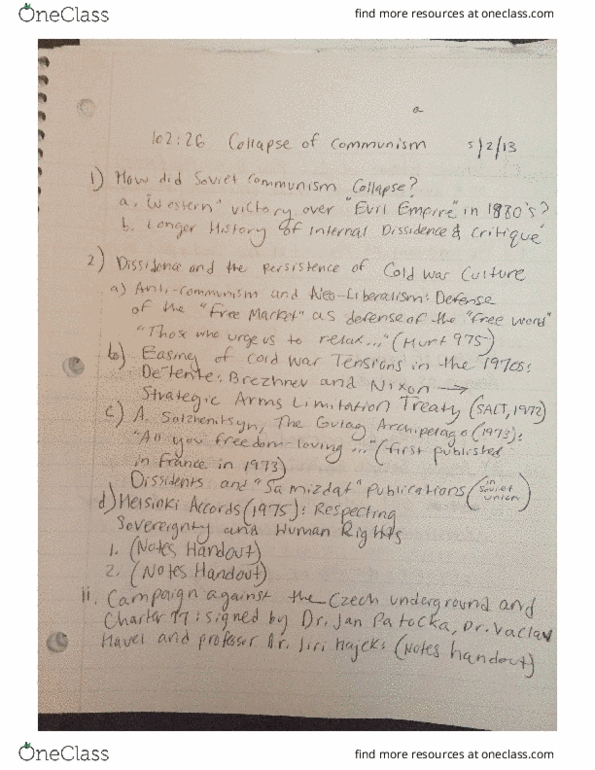 OneClass
find more resources at oneclass.com
a
102:26 Collapse of Communism 5/2/13
1) How did Soviet Communism Collapse?
a. "Western" victory over "Evil Empire" in 1980's?
b. Longer History of Internal Dissidence & Critique
2) Dissidence and the persistence of Cold War Culture
a) Anti-Communism and Neo-Liberalism: Defense
of the "Free Market" as defense of the "free word"
"Those who urge us to relax..." (Hunt 975)
b) Easing of Cold War Tensions in the 1970s:
Detente: Brezhnev and Nixon →
Strategic Arms Limitation Treaty (SALT, 1972)
c) A. Solzhenitsyn, The Gulag Archipelago (1973):
"All you freedom-loving..." (first published
in France in 1973)
Dissidents and "Samizdat" Publications (in Soviet Union)
d) Helsinki Accords (1975): Respecting
Sovereignty and Human Rights
1. (Notes Handout)
2. (Notes Handout)
ii. Campaign against the Czech underground and
Charter 77: signed by Dr. Jan Patocka, Dr. Vaclav
Havel and professor Dr. Jiri Hajek: (Notes handout)
OneClass
find more resources at oneclass.com